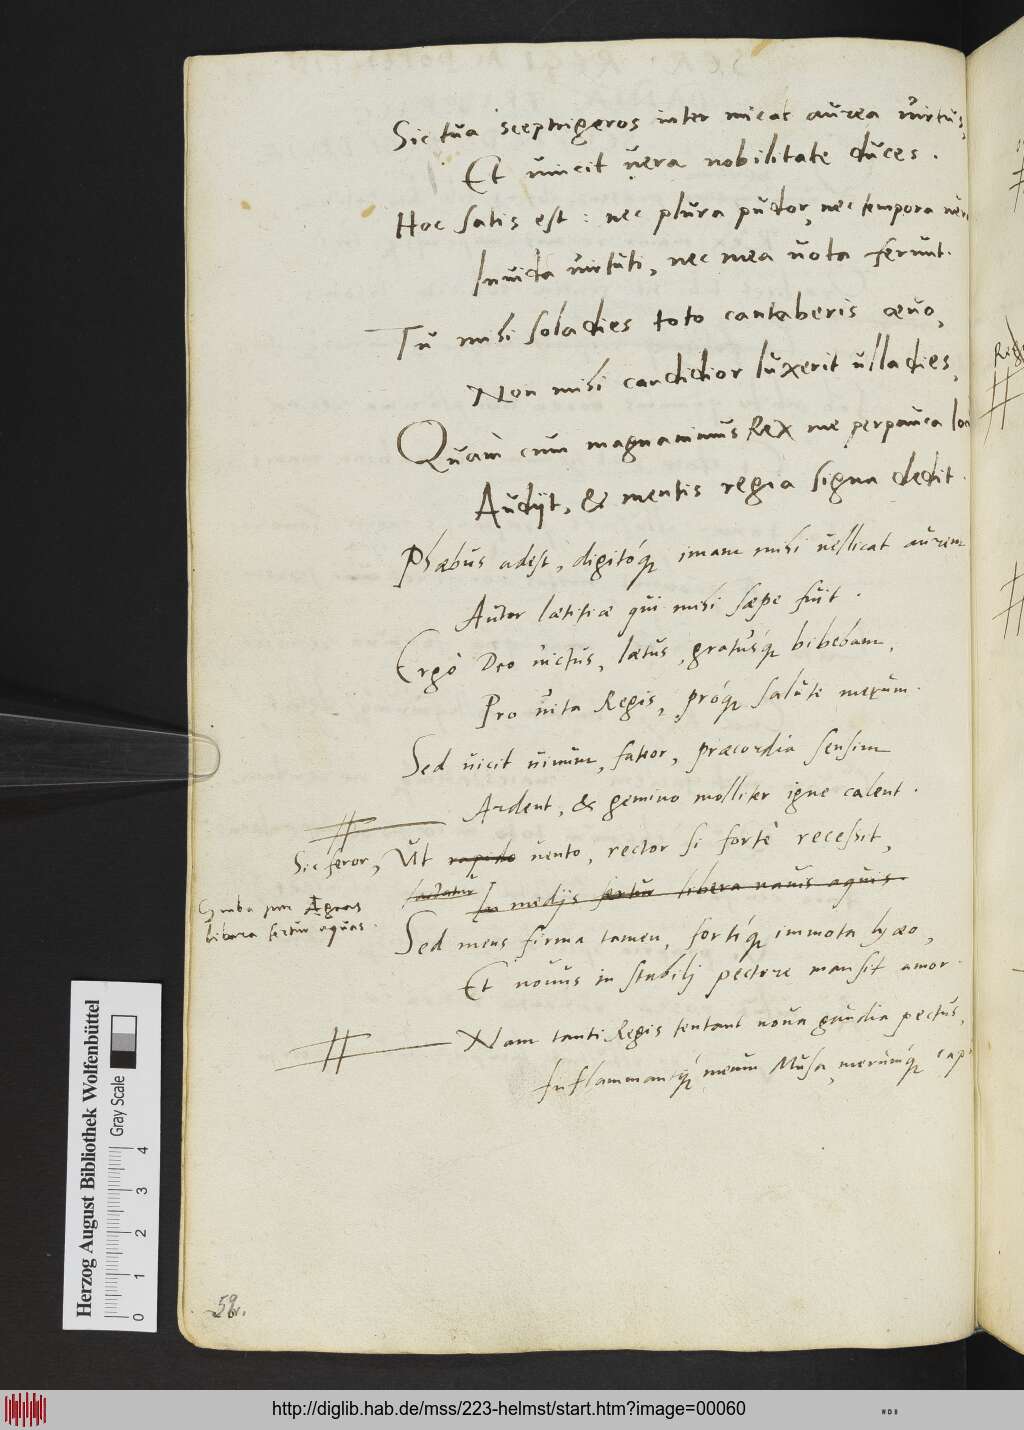 Sic tua sceptrigeros inter micat aurea virtus,
Et vincit vera nobilitate duces.
Hoc satis est: nec plura pudor, nec tempora
Invida virtuti, nec mea vota ferunt.
Tu mihi sola dies toto cantaberis ævo,
Non mihi candidior luxerit ulla dies,
Quàm cum magnanimus Rex me perpauca
Audijt, & mentis regia signa dedit.
Phæbus adest, digitóq; imam mihi vellicat aurem
Autor lætitiæ qui mihi sæpe fuit.
Ergò Deo victus, lætus, gratusq́; bibebam,
Pro vita Regis, próq; salute merum.
Sed vicit vinum, fateor, præcordia sensim
Ardent, & gemino molliter igne calent.
Sic feror, Ut rapido vento, rector si fortè recessit,
Iactatur In medijs fertur libera navis aquis.
libera fertur aquas.
Sed mens firma tamen, fortíq; immota lyæo,
Et novus in stabilj pectore mansit amor.
Nam tanti Regis tentant nova gaudia pectus,
Inflammantq́; meum Musa, merumq́;
59.
Herzog August Bibliothek Wolfenbüttel
Gray Scale
0 1 2 3 4
http://diglib.hab.de/mss/223-helmst/start.htm?image=00060